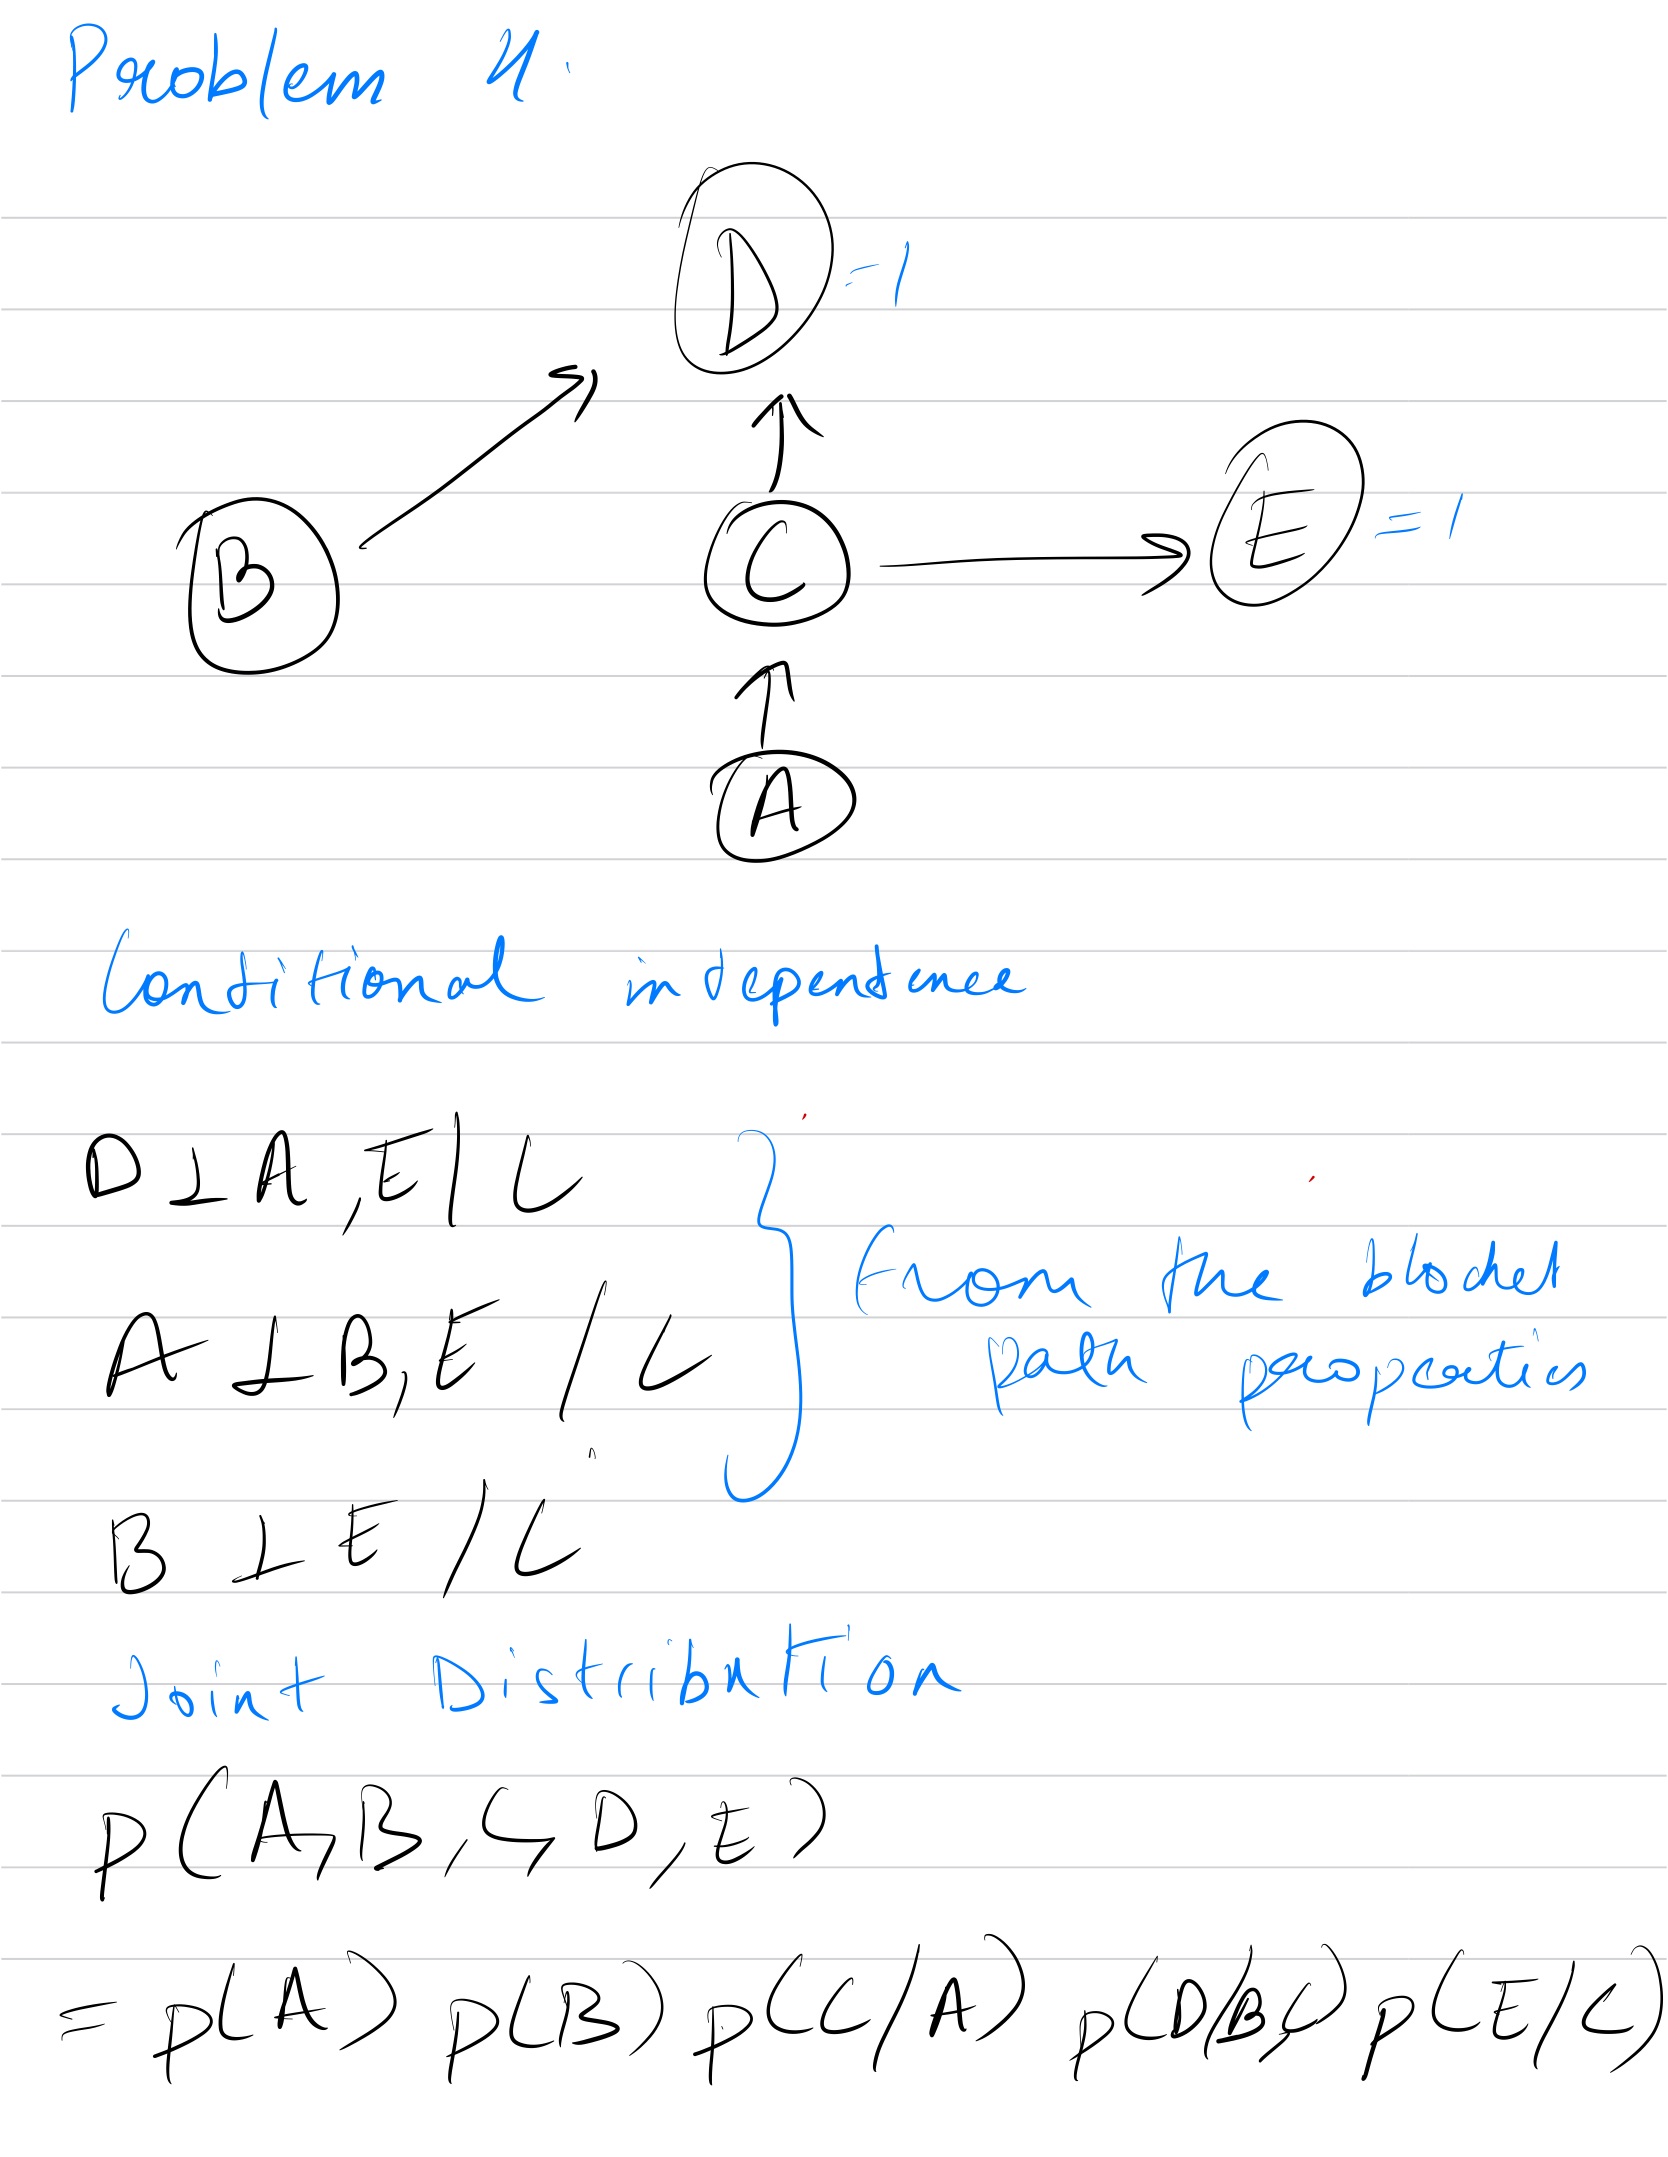 Problem 4.
D = 1
B
C
E = 1
A
Conditional independence
D ⊥ A, E | C
A ⊥ B, E / C
B ⊥ E / C
From the
path properties
Joint Distribution
p(A, B, C, D, E)
= p(A) p(B) p(C/A) p(D/B,C) p(E/C)